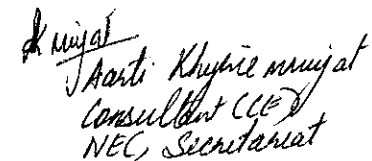 Aarti Khyriemmujat
Consultant (CE)
NEC, Secretariat